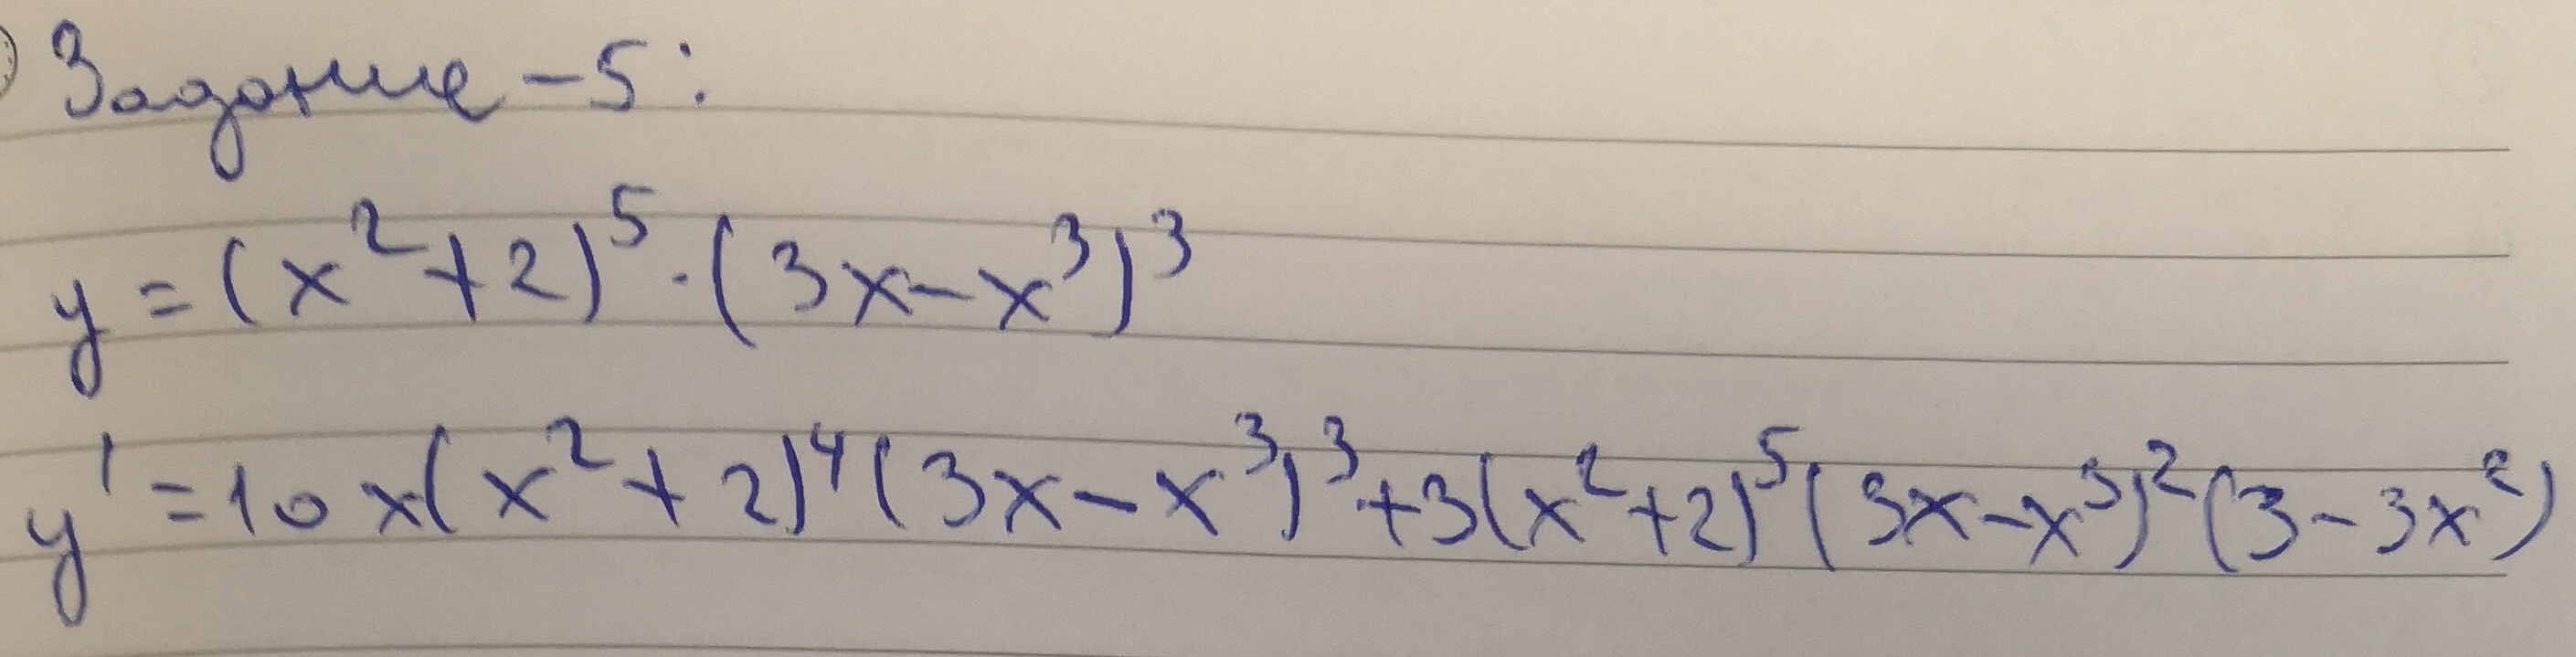 Задание -5:
y = (x² + 2)⁵ · (3x - x³)³
y' = 10x(x² + 2)⁴(3x - x³)³ + 3(x² + 2)⁵(3x - x³)²(3 - 3x²)